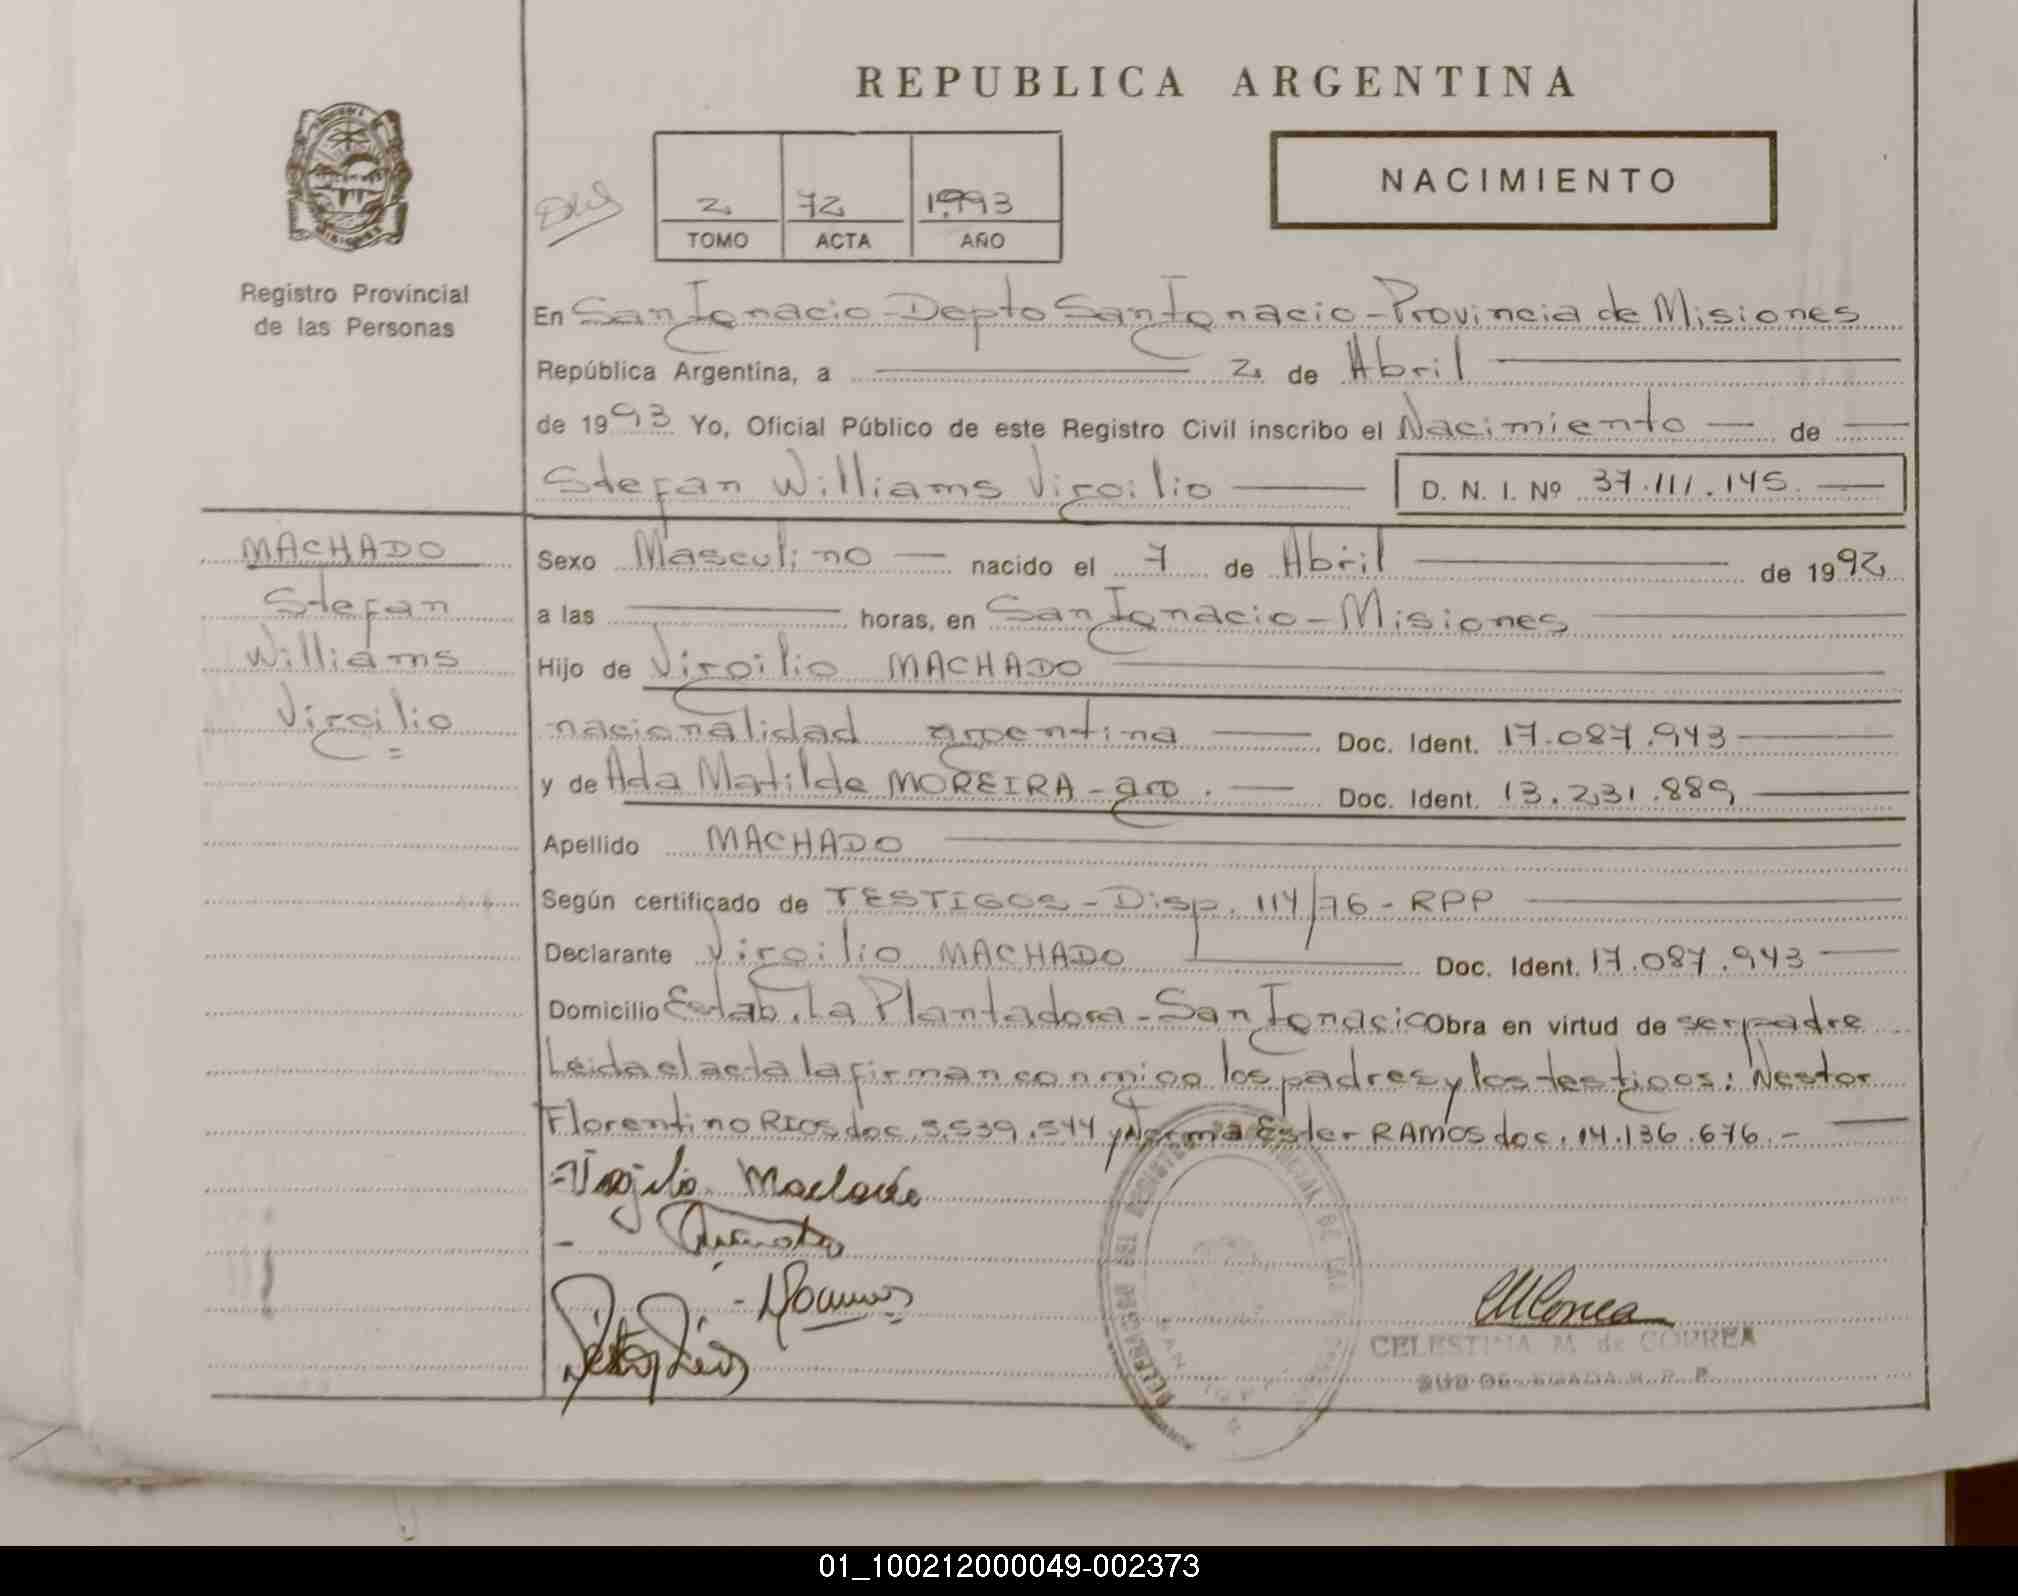 REPUBLICA ARGENTINA
NACIMIENTO
2 72 1993
TOMO ACTA AÑO
Registro Provincial
de las Personas
En San Ignacio - Depto San Ignacio - Provincia de Misiones
República Argentina, a 2 de Abril
de 1993 Yo, Oficial Público de este Registro Civil inscribo el Nacimiento de
Stefan Williams Virgilio D. N. I. Nº 37.111.145
MACHADO
Stefan
Williams
Virgilio
Sexo Masculino nacido el 7 de Abril de 1992
a las horas, en San Ignacio - Misiones
Hijo de Virgilio MACHADO
nacionalidad argentina Doc. Ident. 17.087.943
y de Ada Matilde MOREIRA - arg. Doc. Ident. 13.231.889
Apellido MACHADO
Según certificado de TESTIGOS - Disp. 114/76 - RPP
Declarante Virgilio MACHADO Doc. Ident. 17.087.943
Domicilio Estab. La Plantadora - San Ignacio Obra en virtud de ser padre
Leida el acta la firman conmigo los padres y los testigos: Nestor
Florentino RIOS doc. 5.539.544 y Norma Ester RAMOS doc. 14.136.676.-
Virgilio Machado
CELESTINA M. de CORREA
01_100212000049-002373